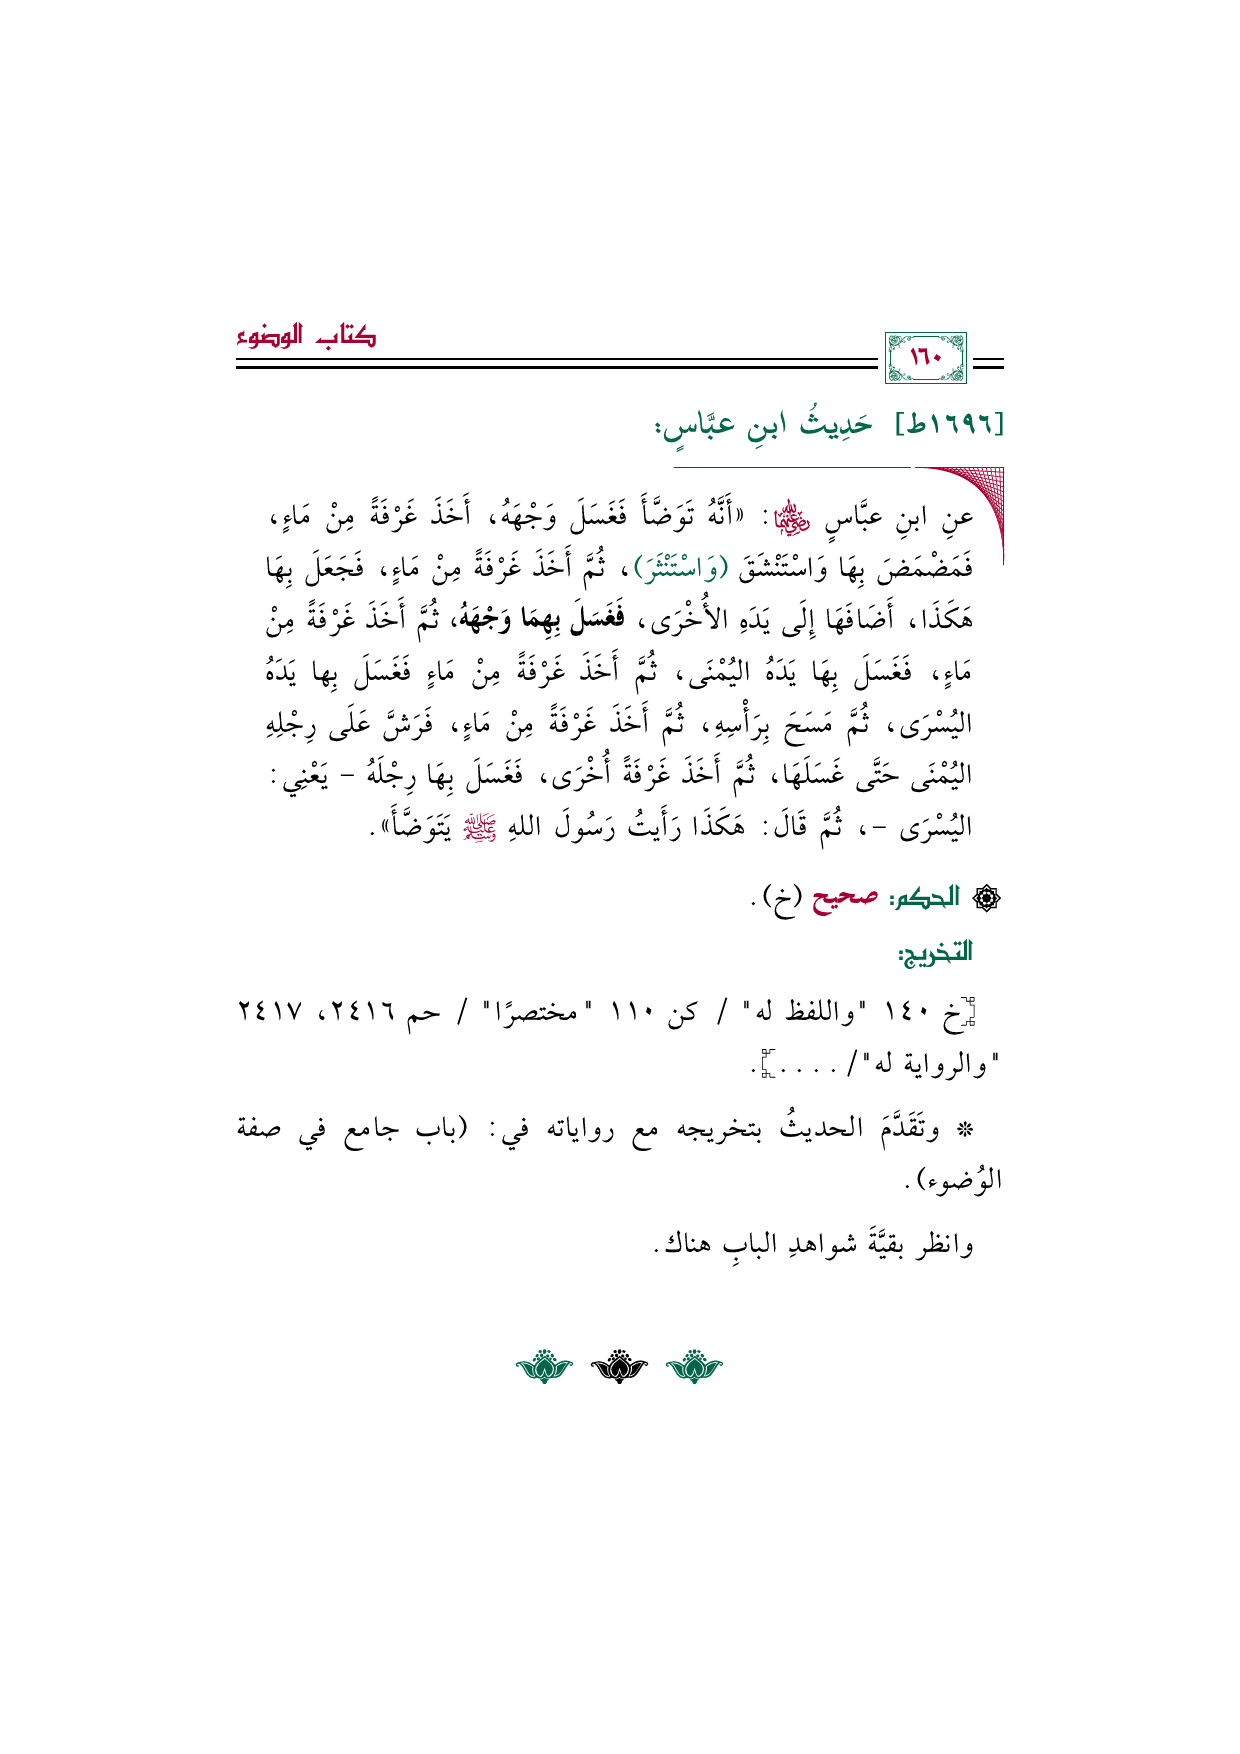 كتاب الوضوء
١٦٠
[١٦٩٦ط] حَدِيثُ ابنِ عبَّاسٍ:
عنِ ابنِ عبَّاسٍ رضي الله عنهما: «أَنَّهُ تَوَضَّأَ فَغَسَلَ وَجْهَهُ، أَخَذَ غَرْفَةً مِنْ مَاءٍ،
فَمَضْمَضَ بِهَا وَاسْتَنْشَقَ (وَاسْتَنْثَرَ)، ثُمَّ أَخَذَ غَرْفَةً مِنْ مَاءٍ، فَجَعَلَ بِهَا
هَكَذَا، أَضَافَهَا إِلَى يَدَهِ الأُخْرَى، فَغَسَلَ بِهِمَا وَجْهَهُ، ثُمَّ أَخَذَ غَرْفَةً مِنْ
مَاءٍ، فَغَسَلَ بِهَا يَدَهُ اليُمْنَى، ثُمَّ أَخَذَ غَرْفَةً مِنْ مَاءٍ فَغَسَلَ بِها يَدَهُ
اليُسْرَى، ثُمَّ مَسَحَ بِرَأْسِهِ، ثُمَّ أَخَذَ غَرْفَةً مِنْ مَاءٍ، فَرَشَّ عَلَى رِجْلِهِ
اليُمْنَى حَتَّى غَسَلَهَا، ثُمَّ أَخَذَ غَرْفَةً أُخْرَى، فَغَسَلَ بِهَا رِجْلَهُ – يَعْنِي:
اليُسْرَى –، ثُمَّ قَالَ: هَكَذَا رَأَيتُ رَسُولَ اللهِ ﷺ يَتَوَضَّأَ».
الحكم: صحيح (خ).
التخريج:
[خ ١٤٠ "واللفظ له" / كن ١١٠ "مختصرًا" / حم ٢٤١٦، ٢٤١٧
"والرواية له"/ . . . .].
* وتَقَدَّمَ الحديثُ بتخريجه مع رواياته في: (باب جامع في صفة
الوُضوء).
وانظر بقيَّةَ شواهدِ البابِ هناك.